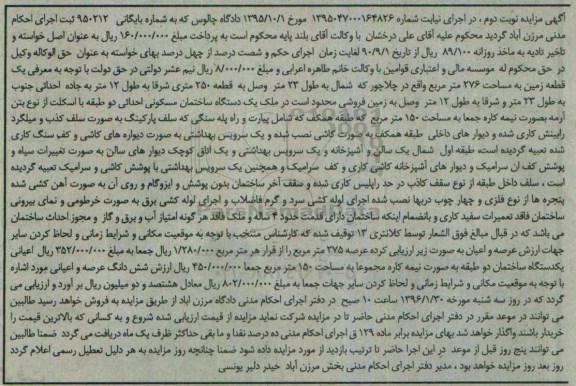 آگهی مزایده نوبت دوم ، در اجرای نیابت شماره ۱۳۹۵۰۴۷۰۰۰۱۶۴۸۲۶ مورخ ۱۳۹۵/۱۰/۱ دادگاه چالوس که به شماره بایگانی ۹۵۰۲۱۲ ثبت اجرای احکام
مدنی مرزن آباد گردید محکوم علیه آقای علی درخشان با وکالت آقای بلند پایه محکوم است به پرداخت مبلغ ۱۶۰/۰۰۰/۰۰۰ ریال به عنوان اصل خواسته و
تاخیر تادیه به ماخذ روزانه ۸۹/۱۰۰ ریال از تاریخ ۹۰/۹/۱ لغایت زمان اجرای حکم و شصت درصد از چهل درصد بهای خواسته به عنوان حق الوکاله وکیل
در حق محکوم له موسسه مالی و اعتباری قوامین با وکالت خانم طاهره اعرابی و مبلغ ۸/۰۰۰/۰۰۰ ریال نیم عشر دولتی در حق دولت با توجه به معرفی یک
قطعه زمین به مساحت ۲۷۶ متر مربع واقع در چلاجور که شمال به طول ۲۳ متر وصل به قطعه ۲۵۰ متری شرقا به طول ۱۲ متر به جاده احداثی جنوب
به طول ۲۳ متر و شرقا به طول ۱۲ متر وصل به زمین فروشی محدود است در ملک یک دستگاه ساختمان مسکونی احداثی دو طبقه با اسکلت از نوع بتن
آرمه بصورت نیمه کاره جمعا به مساحت ۱۵۰ متر مربع که طبقه همکف که شامل پیلوت و راه پله سنگی که سقف پارکینگ به صورت سقف کذب و میلگرد
رابیتس کاری شده و دیوار های داخلی طبقه همکف به صورت کاشی نصب شده و یک سرویس بهداشتی به صورت دیواره های کاشی و کف سنگ کاری
شده تعبیه گردیده است، طبقه اول شمال یک سالن و آشپزخانه و یک سرویس بهداشتی و یک اتاق کوچک دیوار های سالن به صورت تغییرات سیاه و
پوشش کف آن سرامیک و دیوار های آشپزخانه کاشی کاری و کف سرامیک و همچنین یک سرویس بهداشتی با پوشش کاشی و سرامیک تعبیه گردیده
است ، سقف داخل طبقه از نوع سقف کاذب در حد رابیتس کاری شده و سقف آخر ساختمان بدون پوشش و ایزوگام و روی آن به صورت آهن کشی شده
پنجره ها از نوع فلزی و چهار چوب دربها نصب شده اجرای لوله کشی سرد و گرم فاضلاب و اجرای لوله کشی برق به صورت خرطومی و نمای بیرونی
ساختمان فاقد تعمیرات سفید کاری و بانضمام اینکه ساختمان دارای قدمت حدود ۴ ساله و ملک فاقد هر گونه امتیاز آب و برق و گاز و مجوز احداث ساختمان
می باشد که در قبال مبالغ فوق الشعار توسط کلانتری ۱۳ توقیف شده که کارشناس منتخب با توجه به موقعیت مکانی و شرایط زمانی و لحاظ کردن سایر
جهات ارزش عرصه و اعیان به صورت زیر ارزیابی کرده عرصه ۲۷۵ متر مربع را از قرار هر متر مربع ۱/۲۸۰/۰۰۰ ریال جمعا به مبلغ ۳۵۲/۰۰۰/۰۰۰ ریال اعیانی
یکدستگاه ساختمان دو طبقه به صورت نیمه کاره مجموعا به مساحت ۱۵۰ متر مربع جمعا ۴۵۰/۰۰۰/۰۰۰ ریال ارزش شش دانگ عرصه و اعیانی مورد اشاره
با توجه به موقعیت مکانی و شرایط زمانی و لحاظ کردن سایر جهات جمعا به مبلغ ۸۰۲/۰۰۰/۰۰۰ ریال معادل هشتصد و دو میلیون ریال بر آورد و ارزیابی می
گردد که در روز سه شنبه مورخه ۱۳۹۶/۱/۳۰ ساعت ۱۰ صبح در دفتر اجرای احکام مدنی دادگاه مرزن آباد از طریق مزایده به فروش خواهد رسید طالبین
می توانند در موعد مقرر در دفتر اجرای احکام مدنی حاضر تا در مزایده شرکت نماید مزایده از قیمت ارزیابی شده شروع و به کسانی که بالاترین قیمت را
خریدار باشند واگذار خواهد شد بهای مزایده برابر ماده ۱۲۹ ق اجرای احکام مدنی ده درصد نقدا و ما بقی حداکثر ظرف یک ماه دریافت می گردد ضمنا طالبین
می توانند پنج روز قبل از موعد در این اجرا حاضر تا ترتیب بازدید از مورد مزایده داده شود ضمنا چنانچه روز مزایده به هر دلیل تعطیل رسمی اعلام گردد
روز بعد روز مزایده خواهد بود ، مدیر دفتر اجرای احکام مدنی بخش مرزن آباد حیدر دلیر یونسی